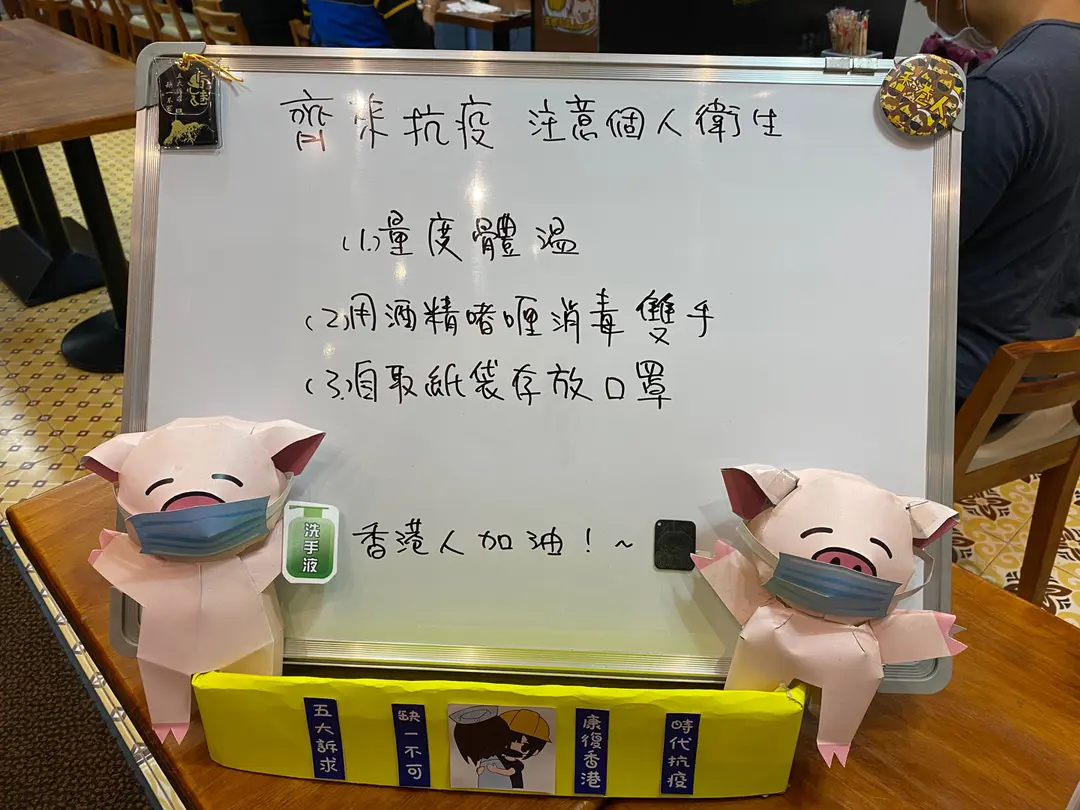 齊來抗疫 注意個人衛生
(1.)量度體溫
(2)用酒精啫喱消毒雙手
(3.)自取紙袋存放口罩
洗手液
香港人加油！~
五大訴求
缺一不可
康復香港
時代抗疫
香港人